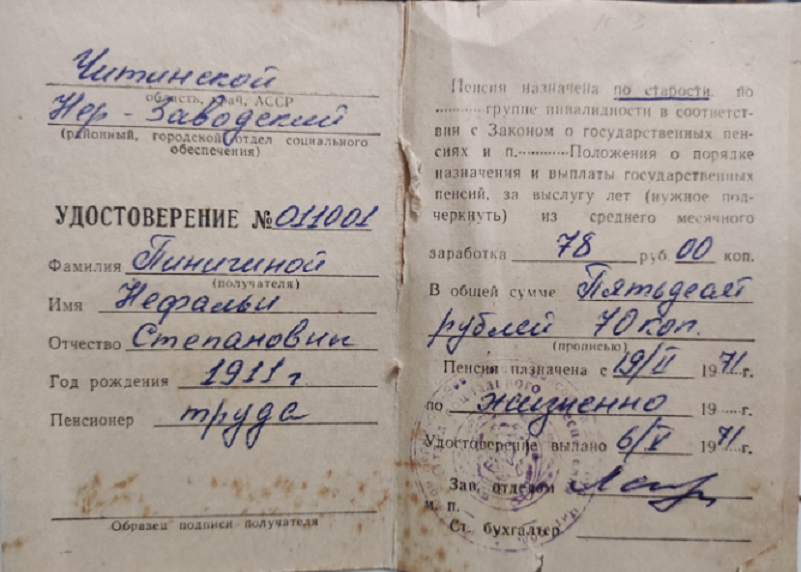 Читинской
область, край, АССР
Нер-Заводский
(районный, городской отдел социального
обеспечения)
УДОСТОВЕРЕНИЕ № 011001
Фамилия Пинигиной
(получателя)
Имя Нефальи
Отчество Степановны
Год рождения 1911 г.
Пенсионер труда
Образец подписи получателя
Пенсия назначена по старости, по
............группе инвалидности в соответст-
вии с Законом о государственных пен-
сиях и п...........Положения о порядке
назначения и выплаты государственных
пенсий, за выслугу лет (нужное под-
черкнуть) из среднего месячного
заработка 78 руб. 00 коп.
В общей сумме Пятьдесят
рублей 70 коп.
(прописью)
Пенсия назначена с 19/II 1971 г.
по жизненно 19......г.
Удостоверение выдано 6/V 1971 г.
Зав. отделом
м. п.
Ст. бухгалтер